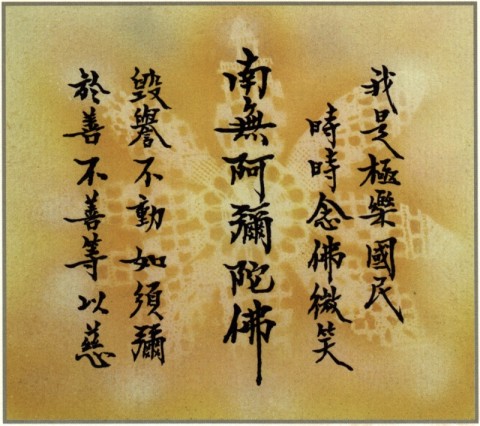 我是極樂國民
時時念佛微笑
南無阿彌陀佛
毀譽不動如須彌
於善不善等以慈